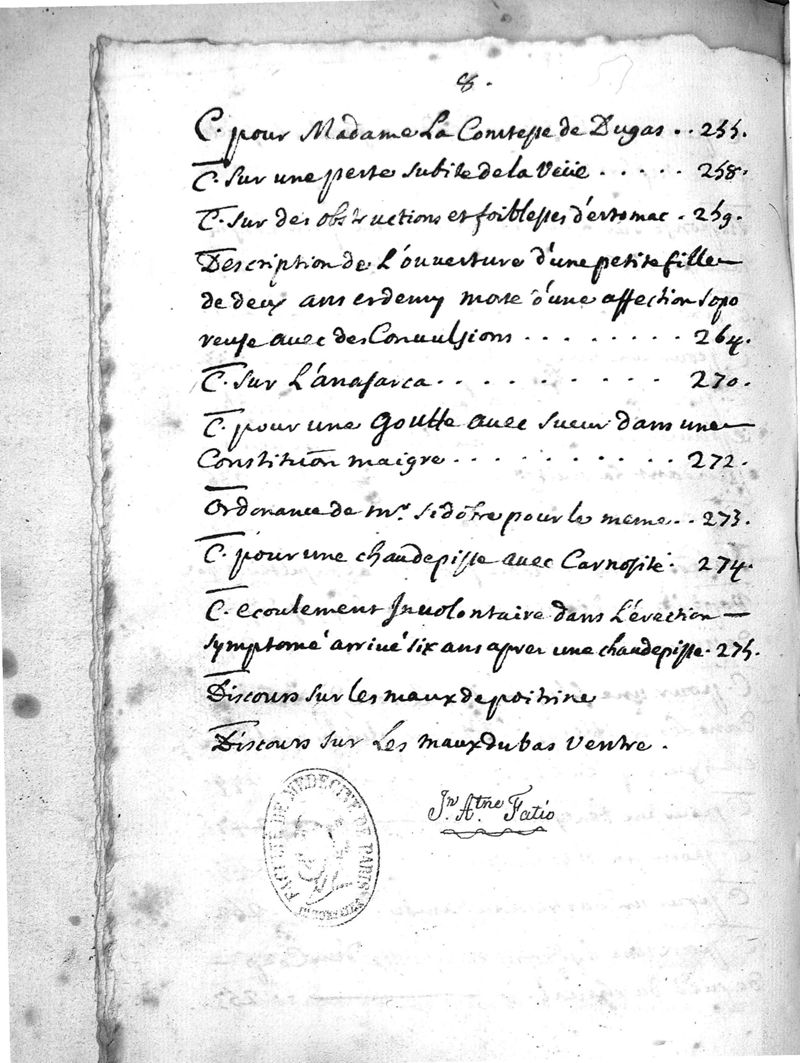 8.
C. pour Madame La Comtesse de Dugas .. 255.
C. Sur une perte subite de la Veüe ..... 258.
C. Sur des obstructions et foiblesses d'estomac . 259.
Description de L'ouverture d'une petite fille
de deux ans et demy morte d'une affection sopo
reuse avec des Convulsions ........ 264.
C. sur L'anasarca .......... 270.
C. pour une Goutte avec sueur dans une
Constitution maigre .......... 272.
Ordonance de mr. Sidobre pour le meme .. 273.
C. pour une chaudepisse avec Carnosité . 274.
C. ecoulement Involontaire dans L'érection —
symptome arrivé six ans apres une chaudepisse . 275.
Discours sur les maux de poitrine
Discours sur Les maux du bas Ventre .
Jn. Atne. Fatio
FACULTÉ DE MEDECINE DE PARIS